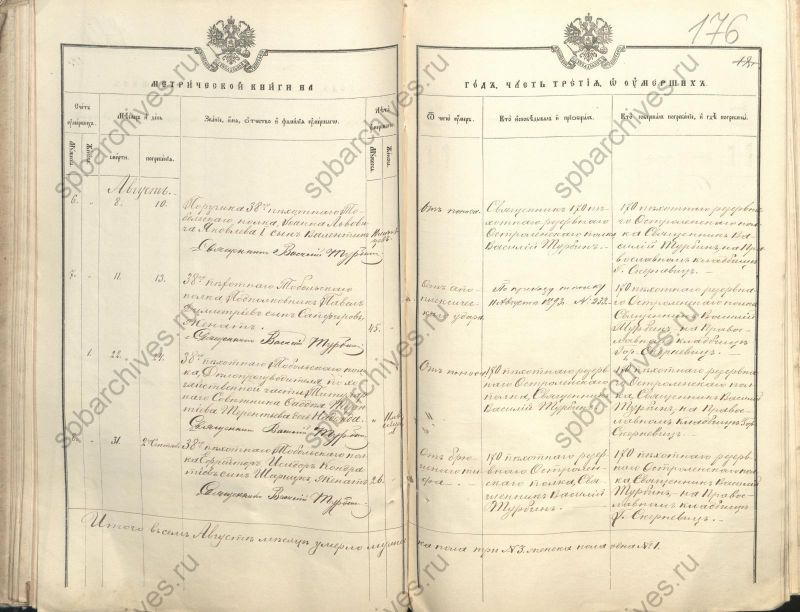 176
МЕТРИЧЕСКОЙ КНИГИ НА
ГОДЪ, ЧАСТЬ ТРЕТІЯ, Ѿ ОУМЕРШИХЪ.
Счетъ оумершихъ.
Мѣсяцъ и день
Званіе, имя, отчество и фамилія оумершаго.
Лѣта оумершаго.
Мужска. Женска.
смерти. погребенія.
Мужска. Женска.
Ѿ чего оумеръ.
Кто исповѣдывалъ и пріобщалъ.
Кто совершалъ погребеніе, и гдѣ погребены.
Августъ.
6. " 8. 10.
Поручика 38го пѣхотнаго То-
больскаго полка, Іоанна Львови-
ча Яковлева 1 сынъ Валентинъ
Священникъ Василій Турбинъ
Отъ поноса
Священникъ 180 пѣ-
хотнаго резервнаго
Остроленскаго полка
Василій Турбинъ.
180 пѣхотнаго резервна-
го Остроленскаго пол-
ка Священникъ Ва-
силій Турбинъ, на Пра-
вославномъ кладбищѣ
г. Скерневицъ.
7. " 11. 13.
38го пѣхотнаго Тобольскаго
полка Подполковникъ Павелъ
Димитріевъ сынъ
Женатъ.
45.
Священникъ Василій Турбинъ
Отъ апо-
плексичес-
каго удара
По приказу по полку
11 Августа 1892 г. № 222.
180 пѣхотнаго резервна-
го Остроленскаго полка
Священникъ Василій
Турбинъ, на Право-
славномъ кладбищѣ
Гор. Скерневицъ.
1. 22. 24.
38го пѣхотнаго Тобольскаго пол-
ка, Дѣлопроизводителя по хо-
зяйственной части, Титуляр-
наго Совѣтника
Священникъ Василій Турбинъ
Отъ поноса
180 пѣхотнаго резерв-
наго Остроленскаго
полка, Священникъ
Василій Турбинъ.
180 пѣхотнаго резервна-
го Остроленскаго пол-
ка, Священникъ Василій
Турбинъ, на Право-
славномъ кладбищѣ Гор.
Скерневицъ.
8. " 31. 2 Сентября
38го пѣхотнаго Тобольскаго пол-
ка Ефрейторъ Исидоръ Кондра-
тіевъ сынъ женатъ
26.
Священникъ Василій Турбинъ
Отъ брю-
шнаго ти-
фа
180 пѣхотнаго резер-
внаго Остролен-
скаго полка, Свя-
щенникъ Василій
Турбинъ.
180 пѣхотнаго резерв-
наго Остроленскаго пол-
ка Священникъ Василій
Турбинъ, на Право-
славномъ кладбищѣ
г. Скерневицъ.
Итого въ семъ Августѣ мѣсяцѣ умерло мужес-
ка пола три № 3. женска пола одна № 1.
spbarchives.ru
spbarchives.ru
spbarchives.ru
spbarchives.ru
spbarchives.ru
spbarchives.ru